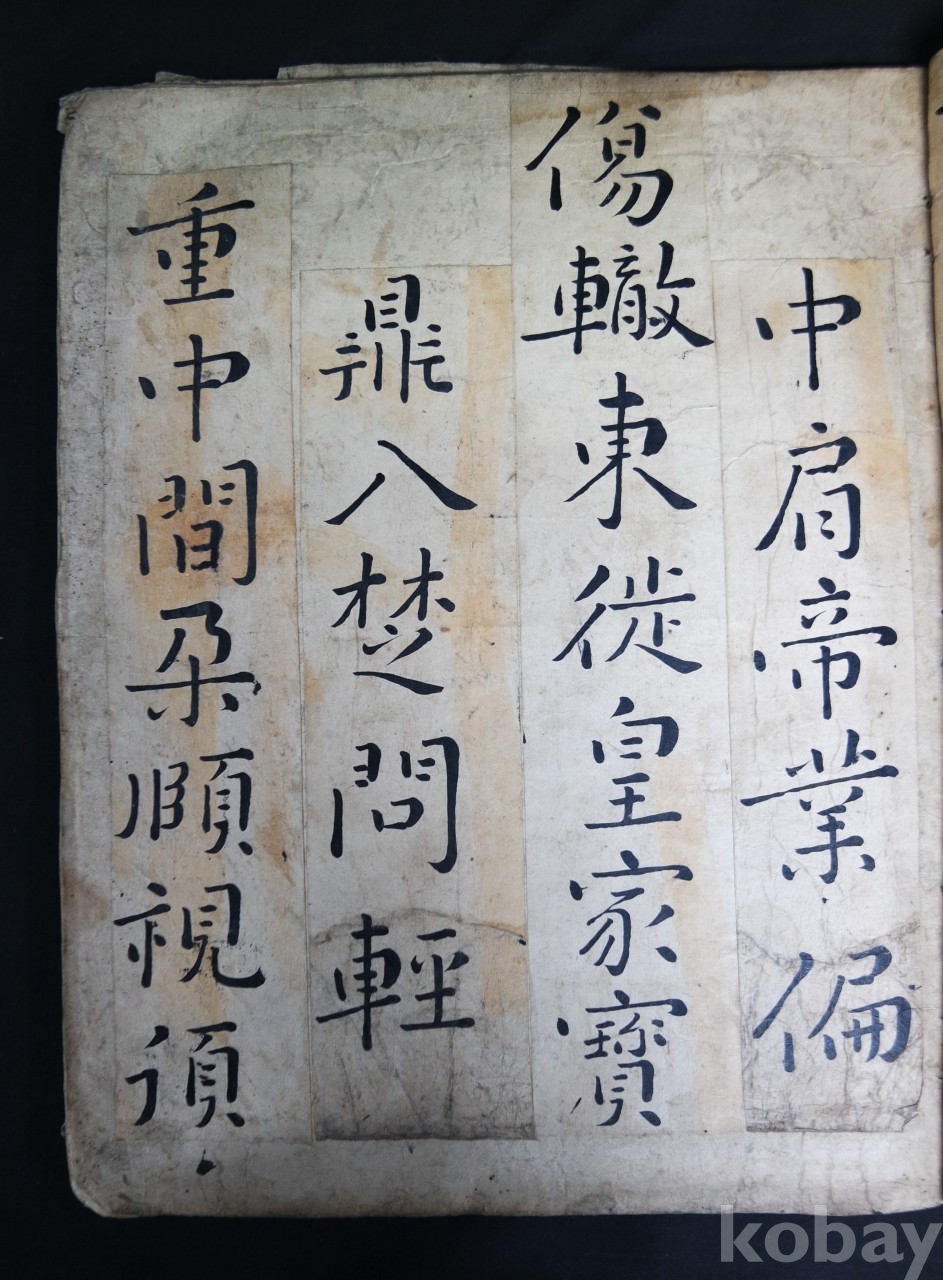 中肩帝業偏
傷轍東徙皇家寶
鼎入楚問輕
重中間朶頤視須
kobay